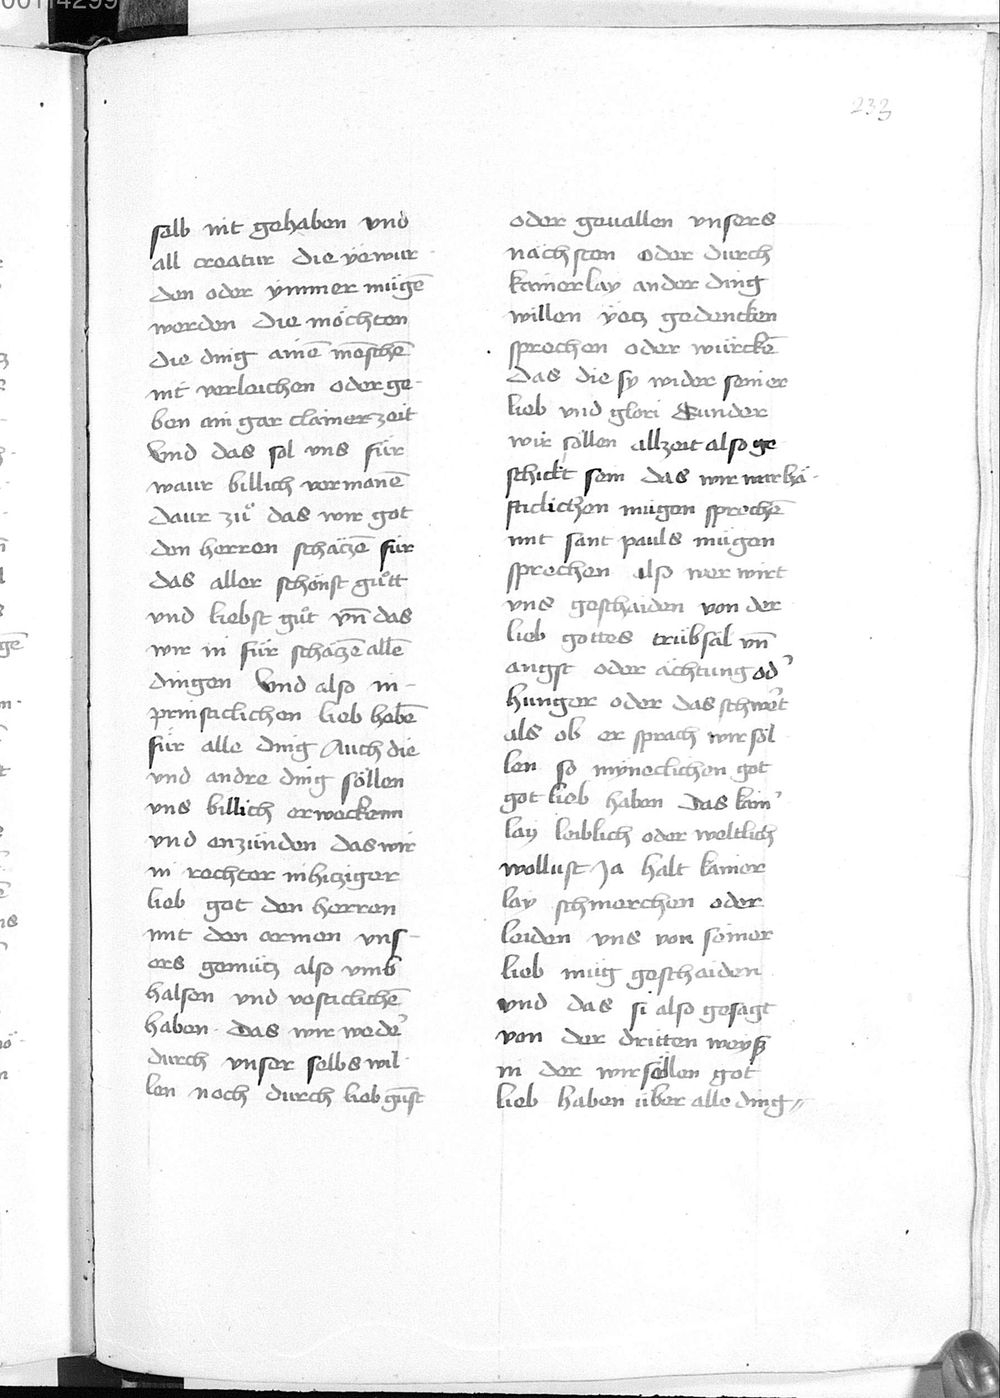 00114299
233
selb nit gehaben vnd
all creatur die ye wur-
den oder ymmer mügē
werden die möchten
die ding ainē menschē
nit verleichen oder ge-
ben ain gar clainer zeit
Vnd das sol vns für
waur billich vermanē
daur zů das wir got
den herren schäczē für
das aller schönst gůtt
vnd liebst gůt vn̄ das
wir in für schäczē allē
dingen Vnd also in-
prinsticlichen lieb habē
für alle ding Auch die
vnd andre ding söllen
vns billich erweckenn
vnd enzünden das wir
in rechter inhicziger
lieb got den herren
mit den ermen vns-
ers gemütz also vmb
halsen vnd vesticlichē
haben das wir wedeʼ
durch vnser selbs wil-
len noch durch lieb gunst
oder geuallen vnsers
nächsten oder durch
kainerlay ander ding
willen yetz gedencken
sprechen oder würckē
das die sy wider seiner
lieb vnd glori Sunder
wir söllen allzeit also ge
schickt sein das wir warhä-
fticlichen mügen sprechē
mit sant pauls mügen
sprechen also wer wirt
vns geschaiden von der
lieb gottes trübsäl vn̄
angst oder ächtung odʼ
hunger oder das schwert
als ob er sprach wir söl
len so mynneclichen got
got lieb haben das kainʼ
lay leiblich oder weltlich
wollust Ja halt kainer
lay schmerchen oder
leiden vns von seiner
lieb müg geschaiden
vnd das si also gesagt
von der dritten weyß
in der wir söllen got
lieb haben über alle ding //